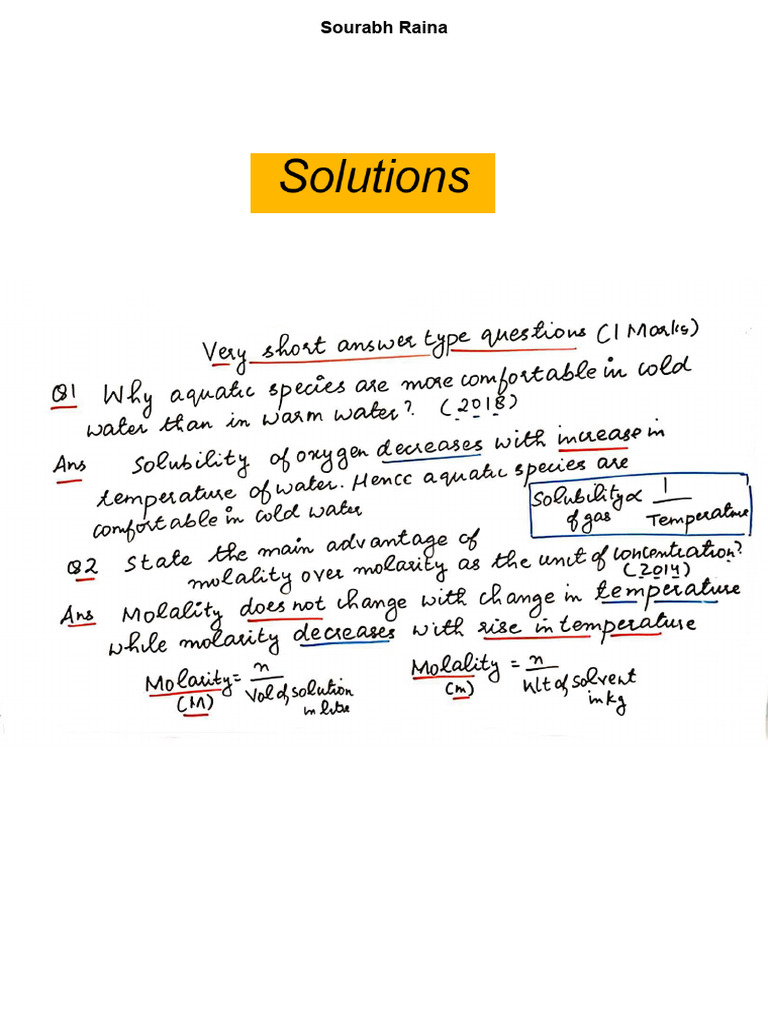 Sourabh Raina
Solutions
Very short answer type questions (1 Marks)
Q1 Why aquatic species are more comfortable in cold
water than in warm water? (2018)
Ans Solubility of oxygen decreases with increase in
temperature of water. Hence aquatic species are
comfortable in cold water
Solubility ∝ 1
of gas Temperature
Q2 State the main advantage of
molality over molarity as the unit of concentration?
(2014)
Ans Molality does not change with change in temperature
while molarity decreases with rise in temperature
Molarity = n
(M) Vol of solution
in litre
Molality = n
(m) Wt of solvent
in kg